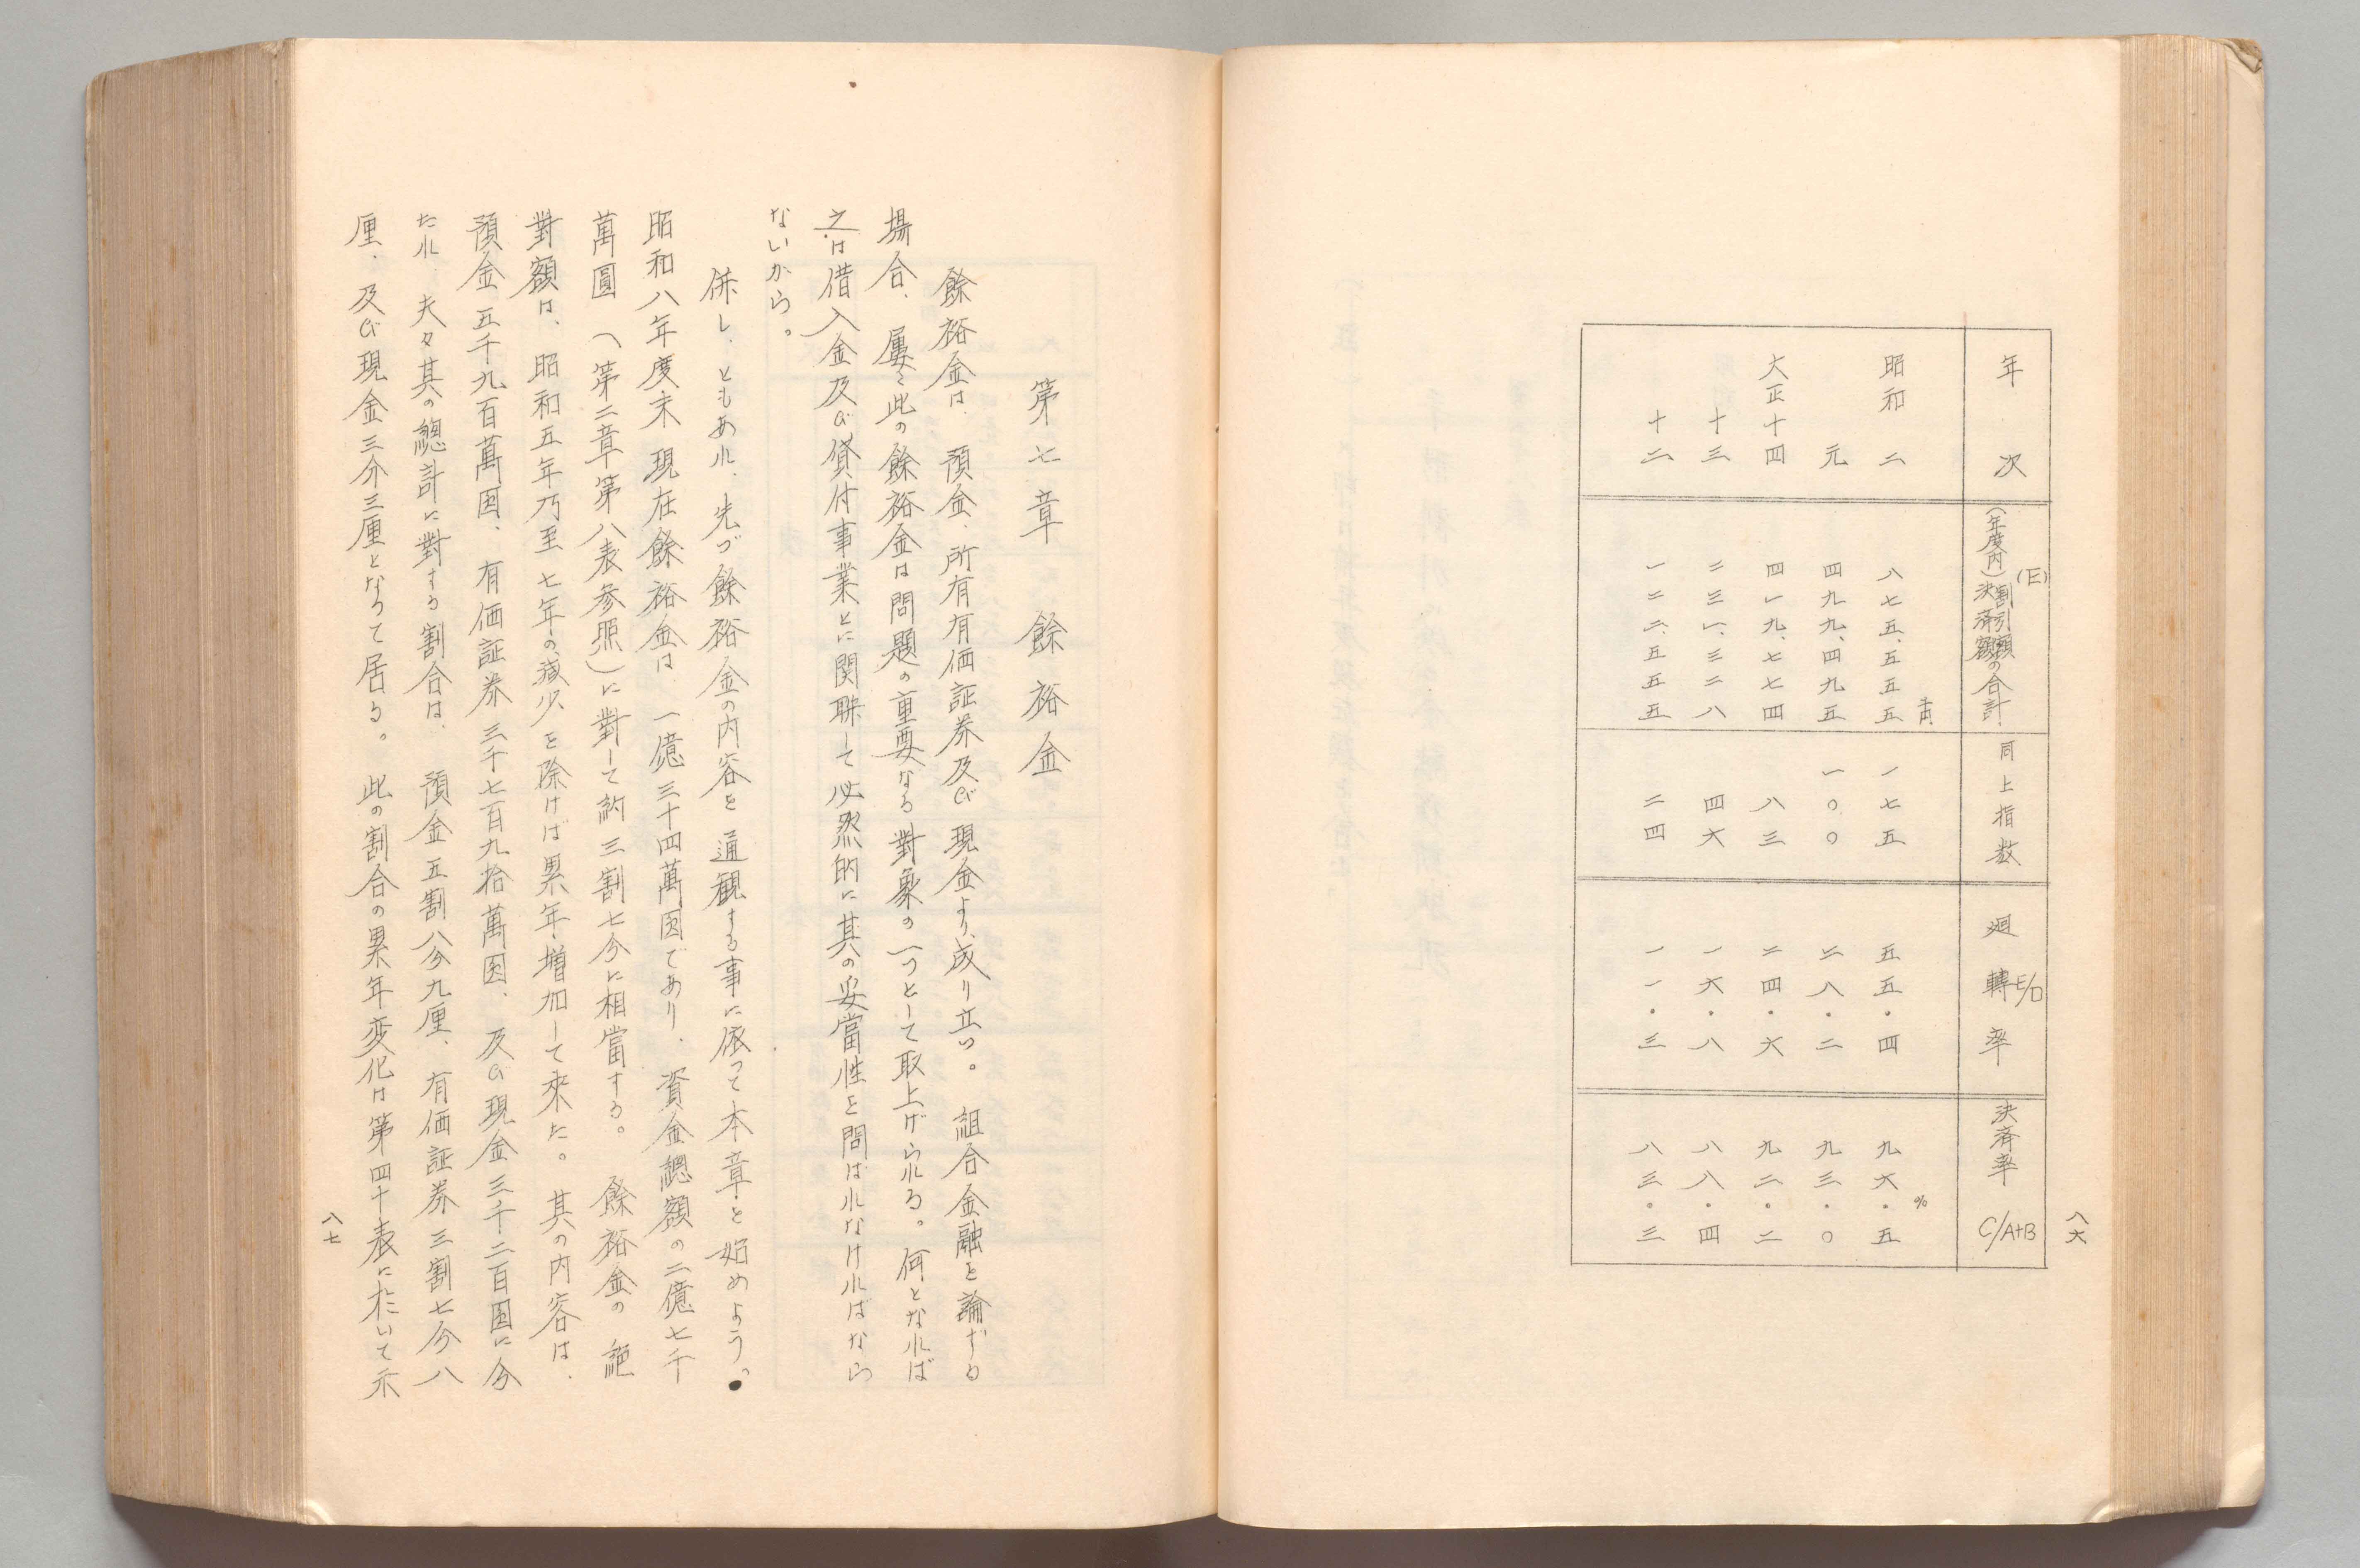 八六
年次
(E)
(年度内)割引額決済額の合計
同上指数
廻轉率 E/D
決済率 C/A+B
千円
%
昭和二 八七五、五五五 一七五 五五・四 九六・五
元 四九九、四九五 一〇〇 二八・二 九三・〇
大正十四 四一九、七七四 八三 二四・六 九二・二
十三 二三一、三二八 四六 一六・八 八八・四
十二 一二二、五五五 二四 一一・三 八三・三
第七章 餘裕金
餘裕金は、預金、所有有価証券及び現金より成り立つ。組合金融を論ずる
場合、屢〻此の餘裕金は問題の重要なる對象の一つとして取上げられる。何となれば
之は借入金及び貸付事業とに関聯して必然的に其の妥當性を問はれなければなら
ないから。
併し、ともあれ、先づ餘裕金の内容を通観する事に依つて本章を始めよう。
昭和八年度末現在餘裕金は一億三十四萬圓であり、資金總額の二億七千
萬圓(第二章第八表参照)に對して約三割七分に相當する。餘裕金の絶
對額は、昭和五年乃至七年の減少を除けば累年増加して來た。其の内容は、
預金五千九百萬圓、有価証券三千七百九拾萬圓、及び現金三千二百圓に分
たれ、夫々其の總計に對する割合は、預金五割八分九厘、有価証券三割七分八
厘、及び現金三分三厘となつて居る。此の割合の累年変化は第四十表に於いて示
八七